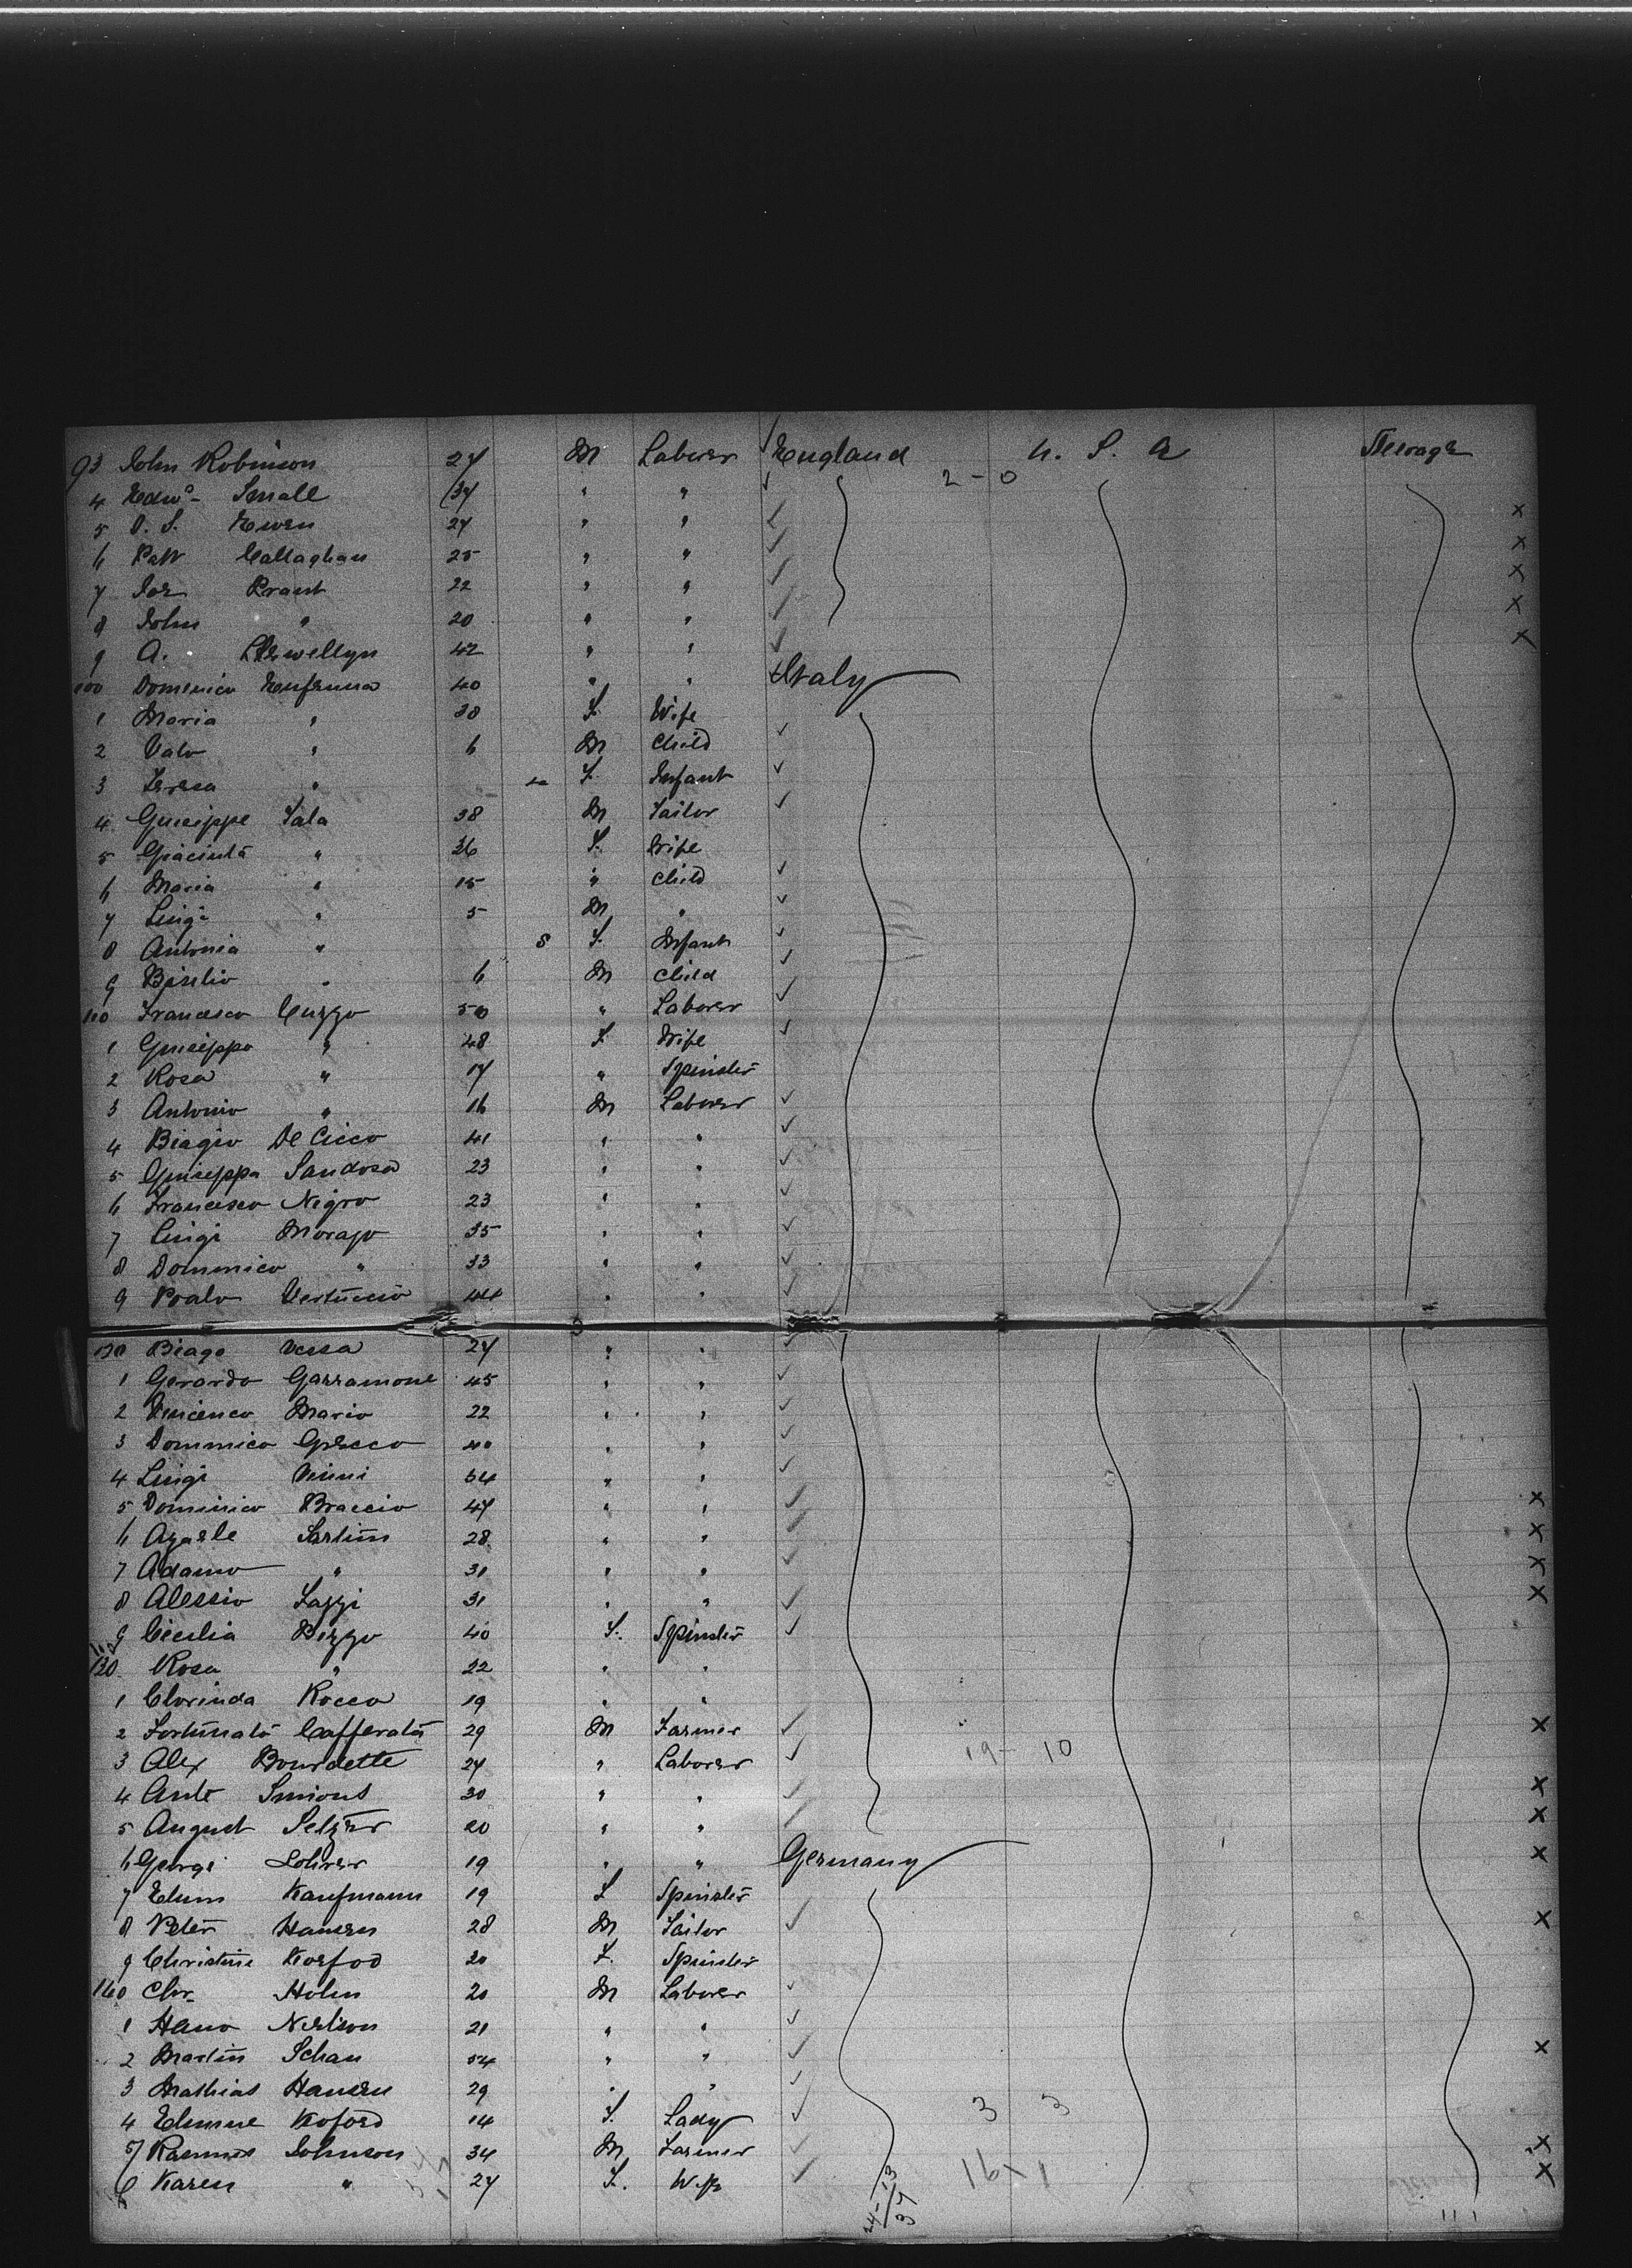 93 John Robinson 27 M Laborer England U. S. A Steerage
4 Edwd Small 37 " " 2-0
5 D. S. Ewen 27 " " x
6 Patk Callaghan 25 " " x
7 Jos Prant 22 " " x
8 John " 20 " " x
9 A. Llewellyn 42 " " x
100 Domenico 40 " " Italy
1 Maria " 38 F. Wife
2 Valo " 6 M Child
3 Teresa " F. Infant
4 Guseippe Sala 38 M Tailor
5 Giacinta " 36 F. Wife
6 Maria " 15 " Child
7 Luigi " 5 M "
8 Antonia " 8 F. Infant
9 Basilio " 6 M Child
110 Francesco Cuzzo 50 " Laborer
1 Guseippa " 48 F Wife
2 Rosa " 17 " Spinster
3 Antonio " 16 M Laborer
4 Biagio De Cicco 41 " "
5 Guiseppa Sandosa 23 " "
6 Francesco Nigro 23 " "
7 Luigi Morazo 35 " "
8 Dommico " 33 " "
9 Poalo Vertuccio 44 " "
Biago Vessa 27 " "
1 Gerardo Garramone 45 " "
2 Vincenco Mario 22 " "
3 Dommico Grecco 40 " "
4 Luigi Vinni 34 " "
5 Dominico Braccio 47 " " x
6 Sartini 28 " " x
7 Adamo " 31 " " x
8 Alessio Lazzi 31 " " x
9 Cicilia Bizzo 40 F. Spinster
130 Rosa " 22 " "
1 Clorinda Rocco 19 " "
2 Fortunato Cafferata 29 M Farmer x
3 Alex Bourdette 27 " Laborer 19-10
4 Ante Simons 30 " " x
5 August Selzer 20 " " x
6 George Lohrer 19 " " Germany x
7 Kaufmann 19 F Spinster
8 Peter Hansen 28 M Tailor x
9 Christine Kofod 20 F. Spinster
140 Chr. Holm 20 M Laborer
1 Hans Neilson 21 " "
2 Martin Schau 54 " " x
3 Mathias Hansen 29 " "
4 Koford 14 F. Lady 3 3
5 Rasmus Johnson 34 M Farmer x
6 Karen " 27 F. Wife 16 x 1 x